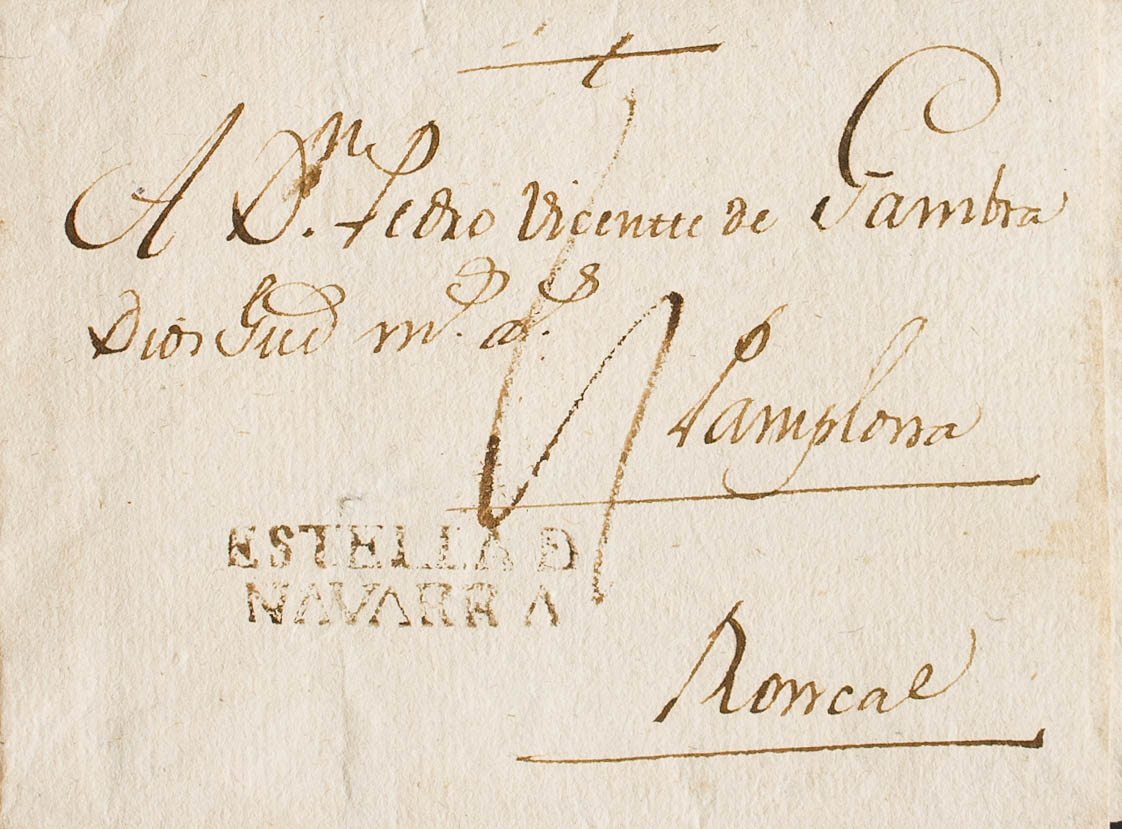 A Dn. Pedro Vicente de Gambra
Dios Gud m.s a.s
Pamplona
ESTELLA D
NAVARRA
Roncal